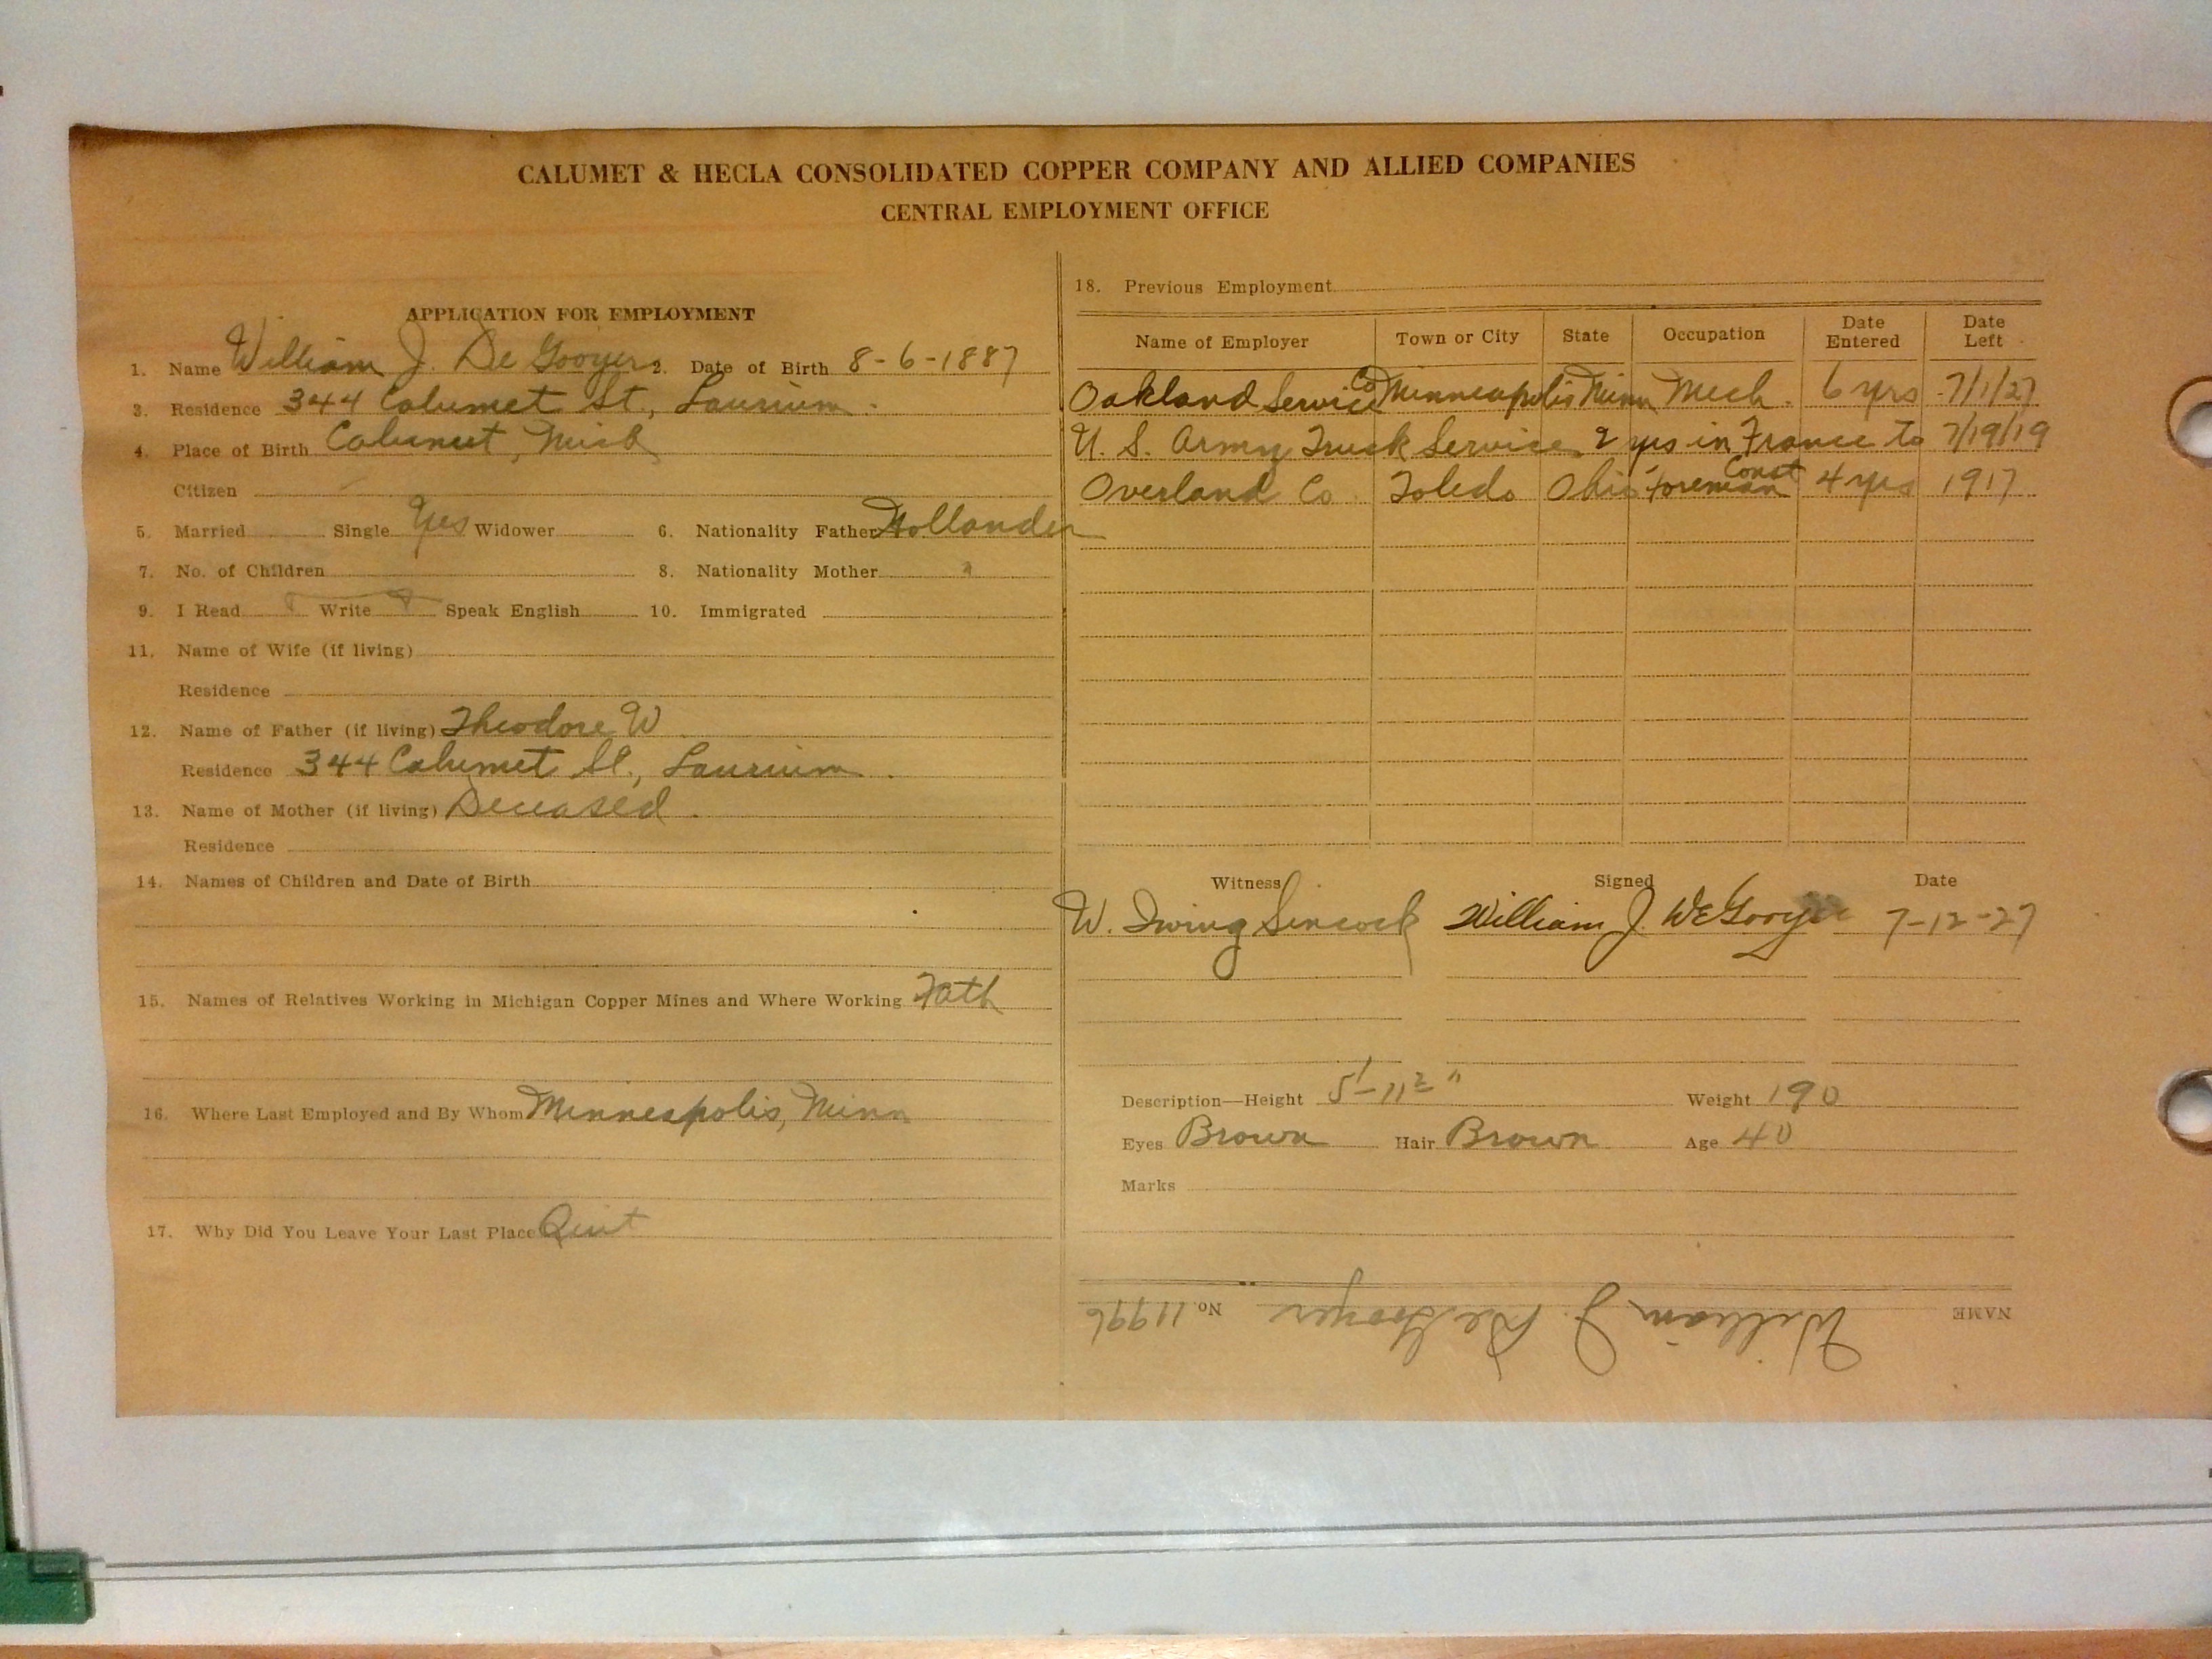 CALUMET & HECLA CONSOLIDATED COPPER COMPANY AND ALLIED COMPANIES
CENTRAL EMPLOYMENT OFFICE
APPLICATION FOR EMPLOYMENT
1. Name William J. De Gooyer 2. Date of Birth 8-6-1887
3. Residence 344 Calumet St., Laurium.
4. Place of Birth Calumet, Mich
Citizen
5. Married Single Yes Widower 6. Nationality Father Hollander
7. No. of Children 8. Nationality Mother "
9. I Read Write Speak English 10. Immigrated
11. Name of Wife (if living)
Residence
12. Name of Father (if living) Theodore W
Residence 344 Calumet St., Laurium.
13. Name of Mother (if living) Deceased.
Residence
14. Names of Children and Date of Birth
15. Names of Relatives Working in Michigan Copper Mines and Where Working Fath
16. Where Last Employed and By Whom Minneapolis, Minn
17. Why Did You Leave Your Last Place Quit
18. Previous Employment
Name of Employer Town or City State Occupation Date Entered Date Left
Oakland Service Co Minneapolis Minn Mech. 6 yrs 7/1/27
U. S. Army Truck Service, 2 yrs in France to 7/19/19
Overland Co. Toledo Ohio Const Foreman 4 yrs 1917
Witness Signed Date
W. Irving Sincock William J. DeGooyer 7-12-27
Description—Height 5'-11 2" Weight 190
Eyes Brown Hair Brown Age 40
Marks
NAME William J. De Gooyer No. 11996